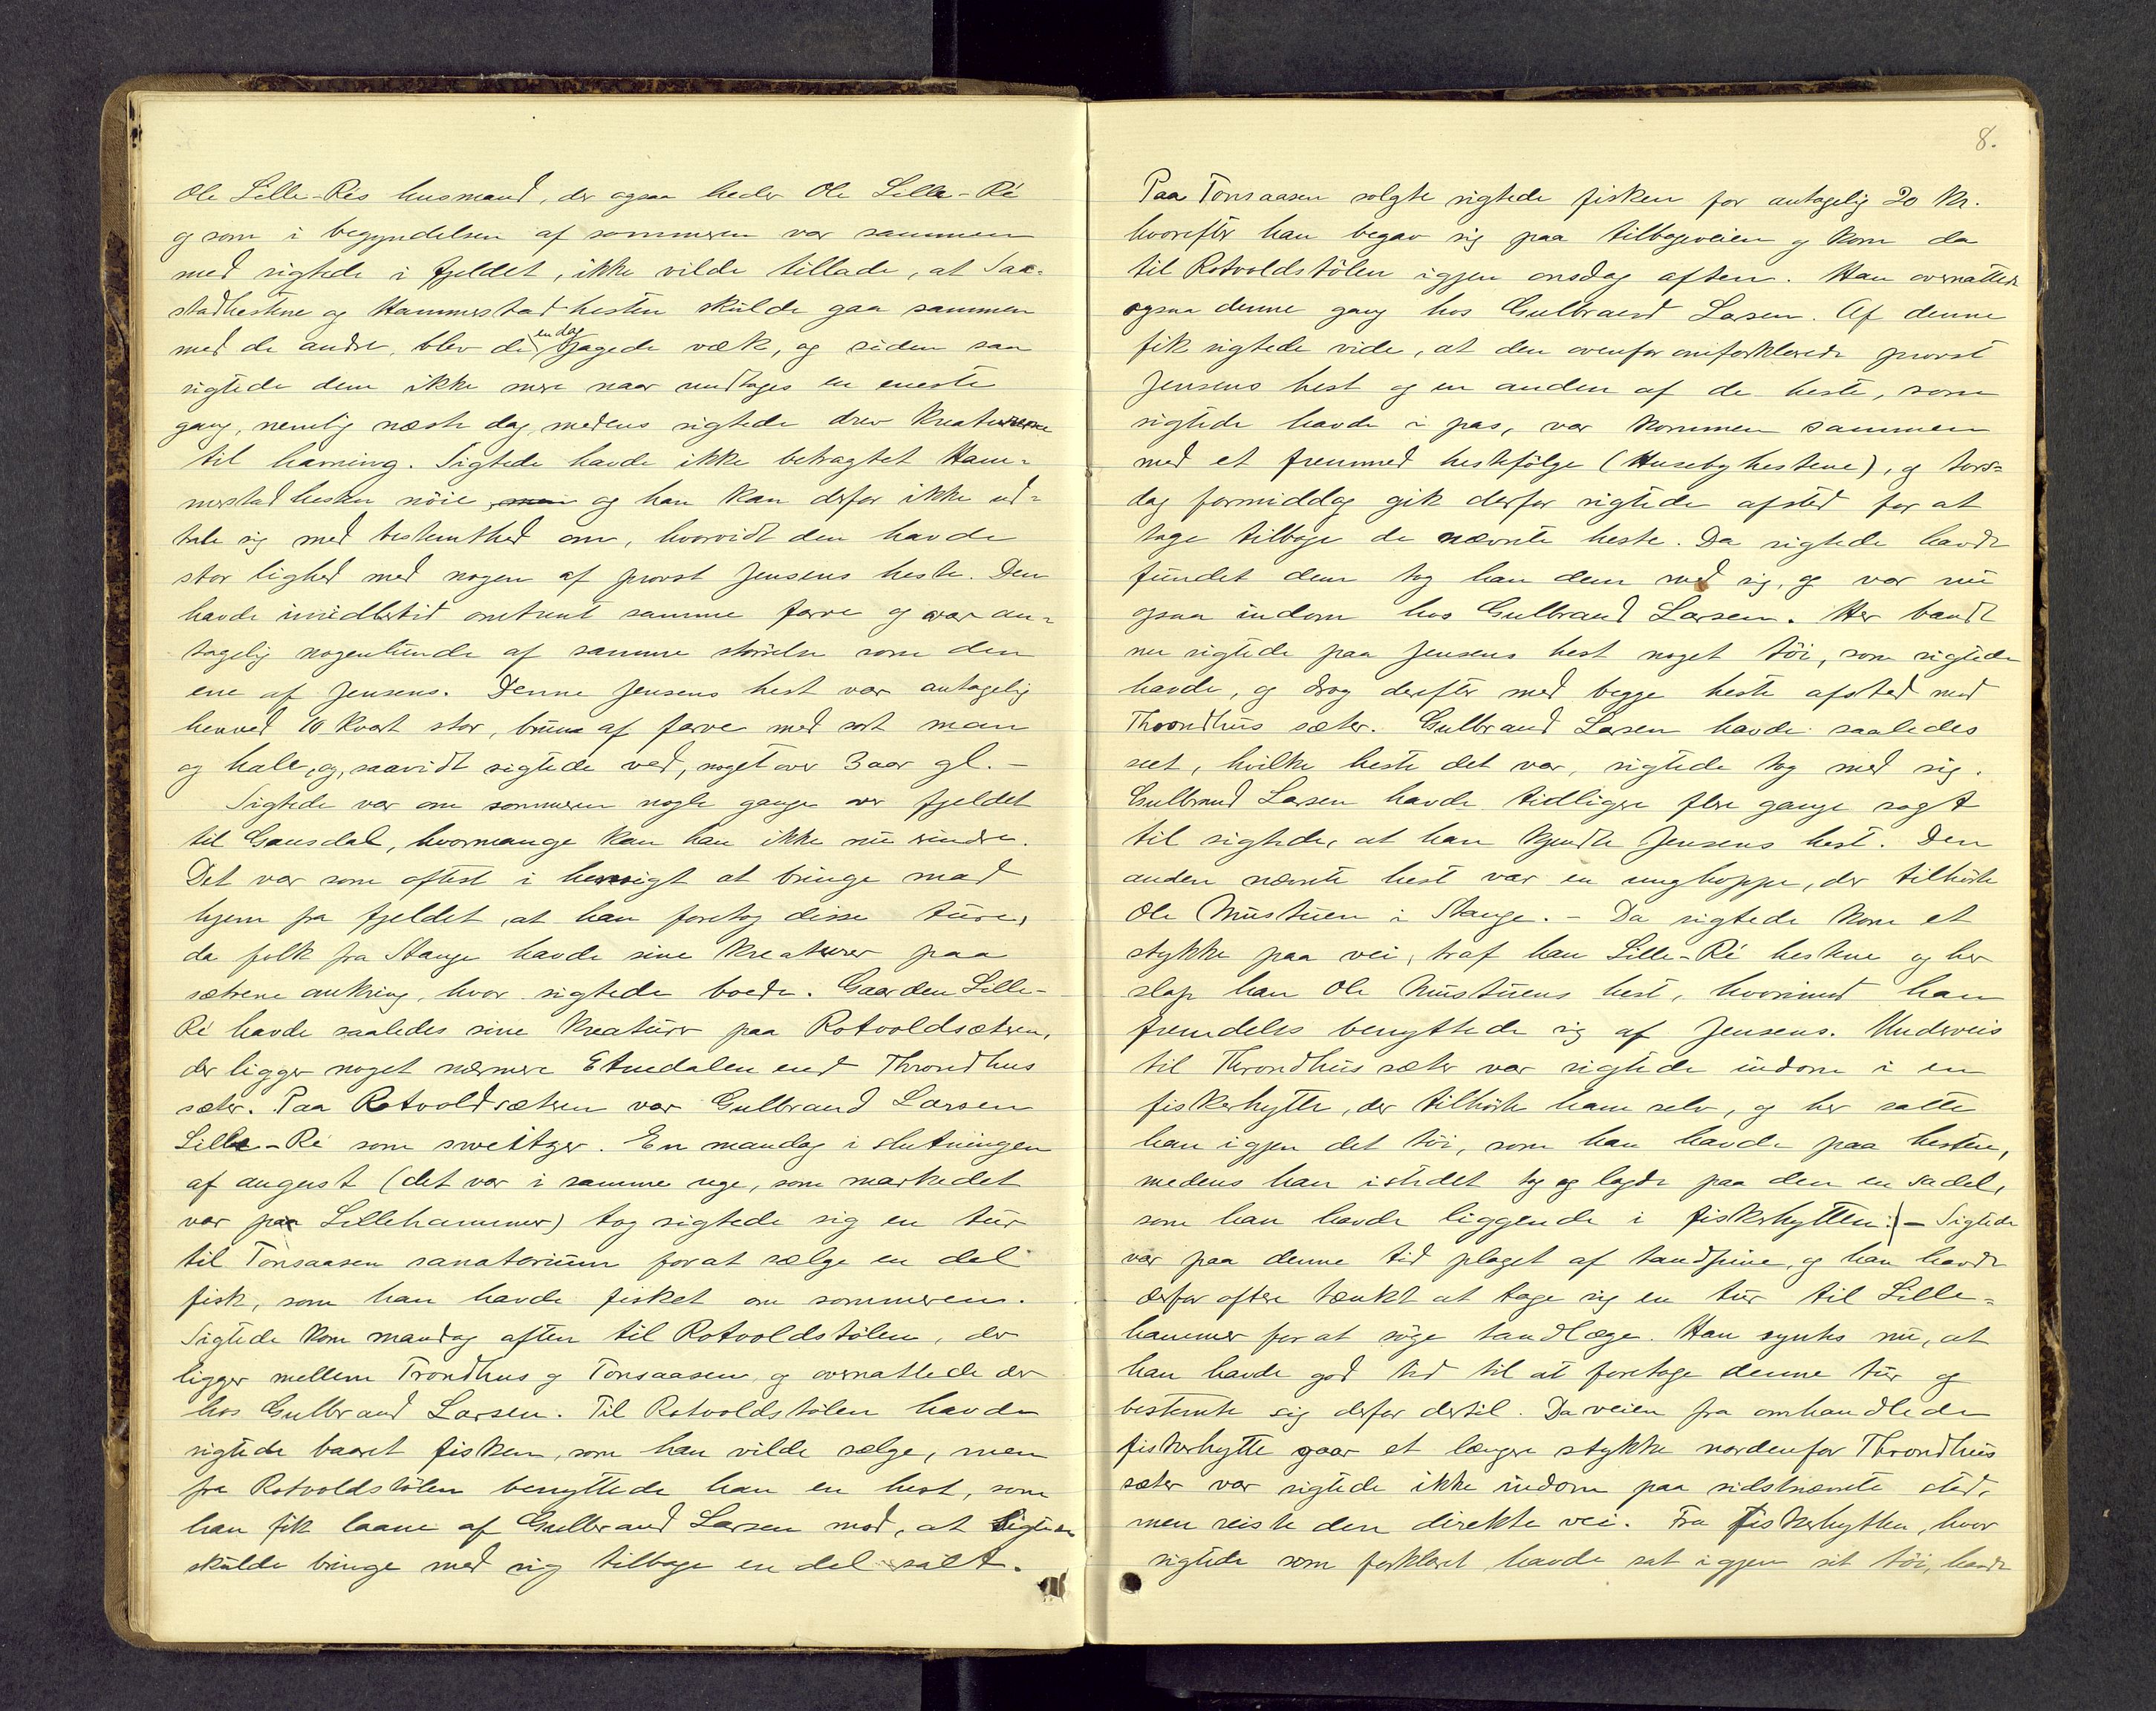 Ole Lille-Rés husmand, der ogsaa heder Ole Lille-Ré
og som i begyndelsen af sommeren var sammen
med sigtede i fjeldet, ikke vilde tillade, at Saa-
stadhestene og Hammerstad-hesten skulde gaa sammen
med de andre, blev de en dag jagede væk, og siden saa
sigtede dem ikke mere naar undtages en eneste
gang, nemlig næste dag, medens sigtede drev kreaturerne
til havning. Sigtede havde ikke betragtet Ham-
merstad hesten nöie men og han kan derfor ikke ud-
tale sig med bestemthed om, hvorvidt den havde
stor lighed med nogen af provst Jensens heste. Den
havde imidlertid omtrent samme farve og var an-
tagelig nogenlunde af samme störrelse som den
ene af Jensens. Denne Jensens hest var antagelig
henved 10 kvart stor, brun af farve med sort man
og hale, og, saavidt sigtede ved, noget over 3 aar gl. -
Sigtede var om sommeren nogle gange over fjeldet
til Gausdal, hvormange kan han ikke nu erindre.
Det var som oftest i hensigt at bringe mad
hjem fra fjeldet, at han foretog disse ture,
da folk fra Stange havde sine kreaturer paa
sætrene omkring, hvor sigtede boede. Gaarden Lille-
Ré havde saaledes sine kreaturer paa Rotvoldsætren,
der ligger noget nærmere Etnedalen end Throndhus
sæter. Paa Rotvoldsætren var Gulbrand Larsen
Lille-Ré som sweitzer. En mandag i slutningen
af august (det var i samme uge, som markedet
var paa Lillehammer) tog sigtede sig en tur
til Tonsaasen sanatorium for at sælge en del
fisk, som han havde fisket om sommeren.
Sigtede kom mandag aften til Rotvoldstölen, der
ligger mellem Trondhus og Tonsaasen, og overnattede der
hos Gulbrand Larsen. Til Rotvoldstölen havde
sigtede baaret fisken, som han vilde sælge, men
fra Rotvoldstölen benyttede han en hest, som
han fik laane af Gulbrand Larsen mod, at Sigtede
skulde bringe med sig tilbage en del salt.
8.
Paa Tonsaasen solgte sigtede fisken for antagelig 20 kr.
hvorefter han begav sig paa tilbageveien og kom da
til Rotvoldstölen igjen onsdag aften. Han overnattede
ogsaa denne gang hos Gulbrand Larsen. Af denne
fik sigtede vide, at den ovenfor omforklarede provst
Jensens hest og en anden af de heste, som
sigtede havde i pas, var kommen sammen
med et fremmed hestefölge (Husebyhestene), og tors-
dag formiddag gik derfor sigtede afsted for at
tage tilbage de nævnte heste. Da sigtede havde
fundet dem tog han dem med sig, og var nu
ogsaa indom hos Gulbrand Larsen. Her bandt
nu sigtede paa Jensens hest noget töi, som sigtede
havde, og drog derefter med begge heste afsted mod
Throndhus sæter. Gulbrand Larsen havde saaledes
seet, hvilke heste det var, sigtede tog med sig.
Gulbrand Larsen havde tidligere flere gange sagt
til sigtede, at han kjendte Jensens hest. Den
anden nævnte hest var en unghoppe, der tilhörte
Ole Mustuen i Stange. - Da sigtede kom et
stykke paa vei, traf han Lille-Ré hestene og her
slap han Ole Mustuens hest, hvorimod han
fremdeles benyttede sig af Jensens. Underveis
til Throndhus sæter var sigtede indom i en
fiskerhytte, der tilhörte ham selv, og her satte
han igjen det töi, som han havde paa hesten,
medens han istedet tog og lagde paa den en sadel,
som han havde liggende i fiskerhytten. - Sigtede
var paa denne tid plaget af tandpine, og han havde
derfor oftere tænkt at tage sig en tur til Lille-
hammer for at söge tandlæge. Han syntes nu, at
han havde god tid til at foretage denne tur og
bestemte sig derfor dertil. Da veien fra omhandlede
fiskerhytte gaar et længere stykke nordenfor Throndhus
sæter var sigtede ikke indom paa sidstnævnte sted,
men reiste den direkte vei. Fra fiskerhytten, hvor
sigtede som forklaret havde sat igjen sit töi, havde